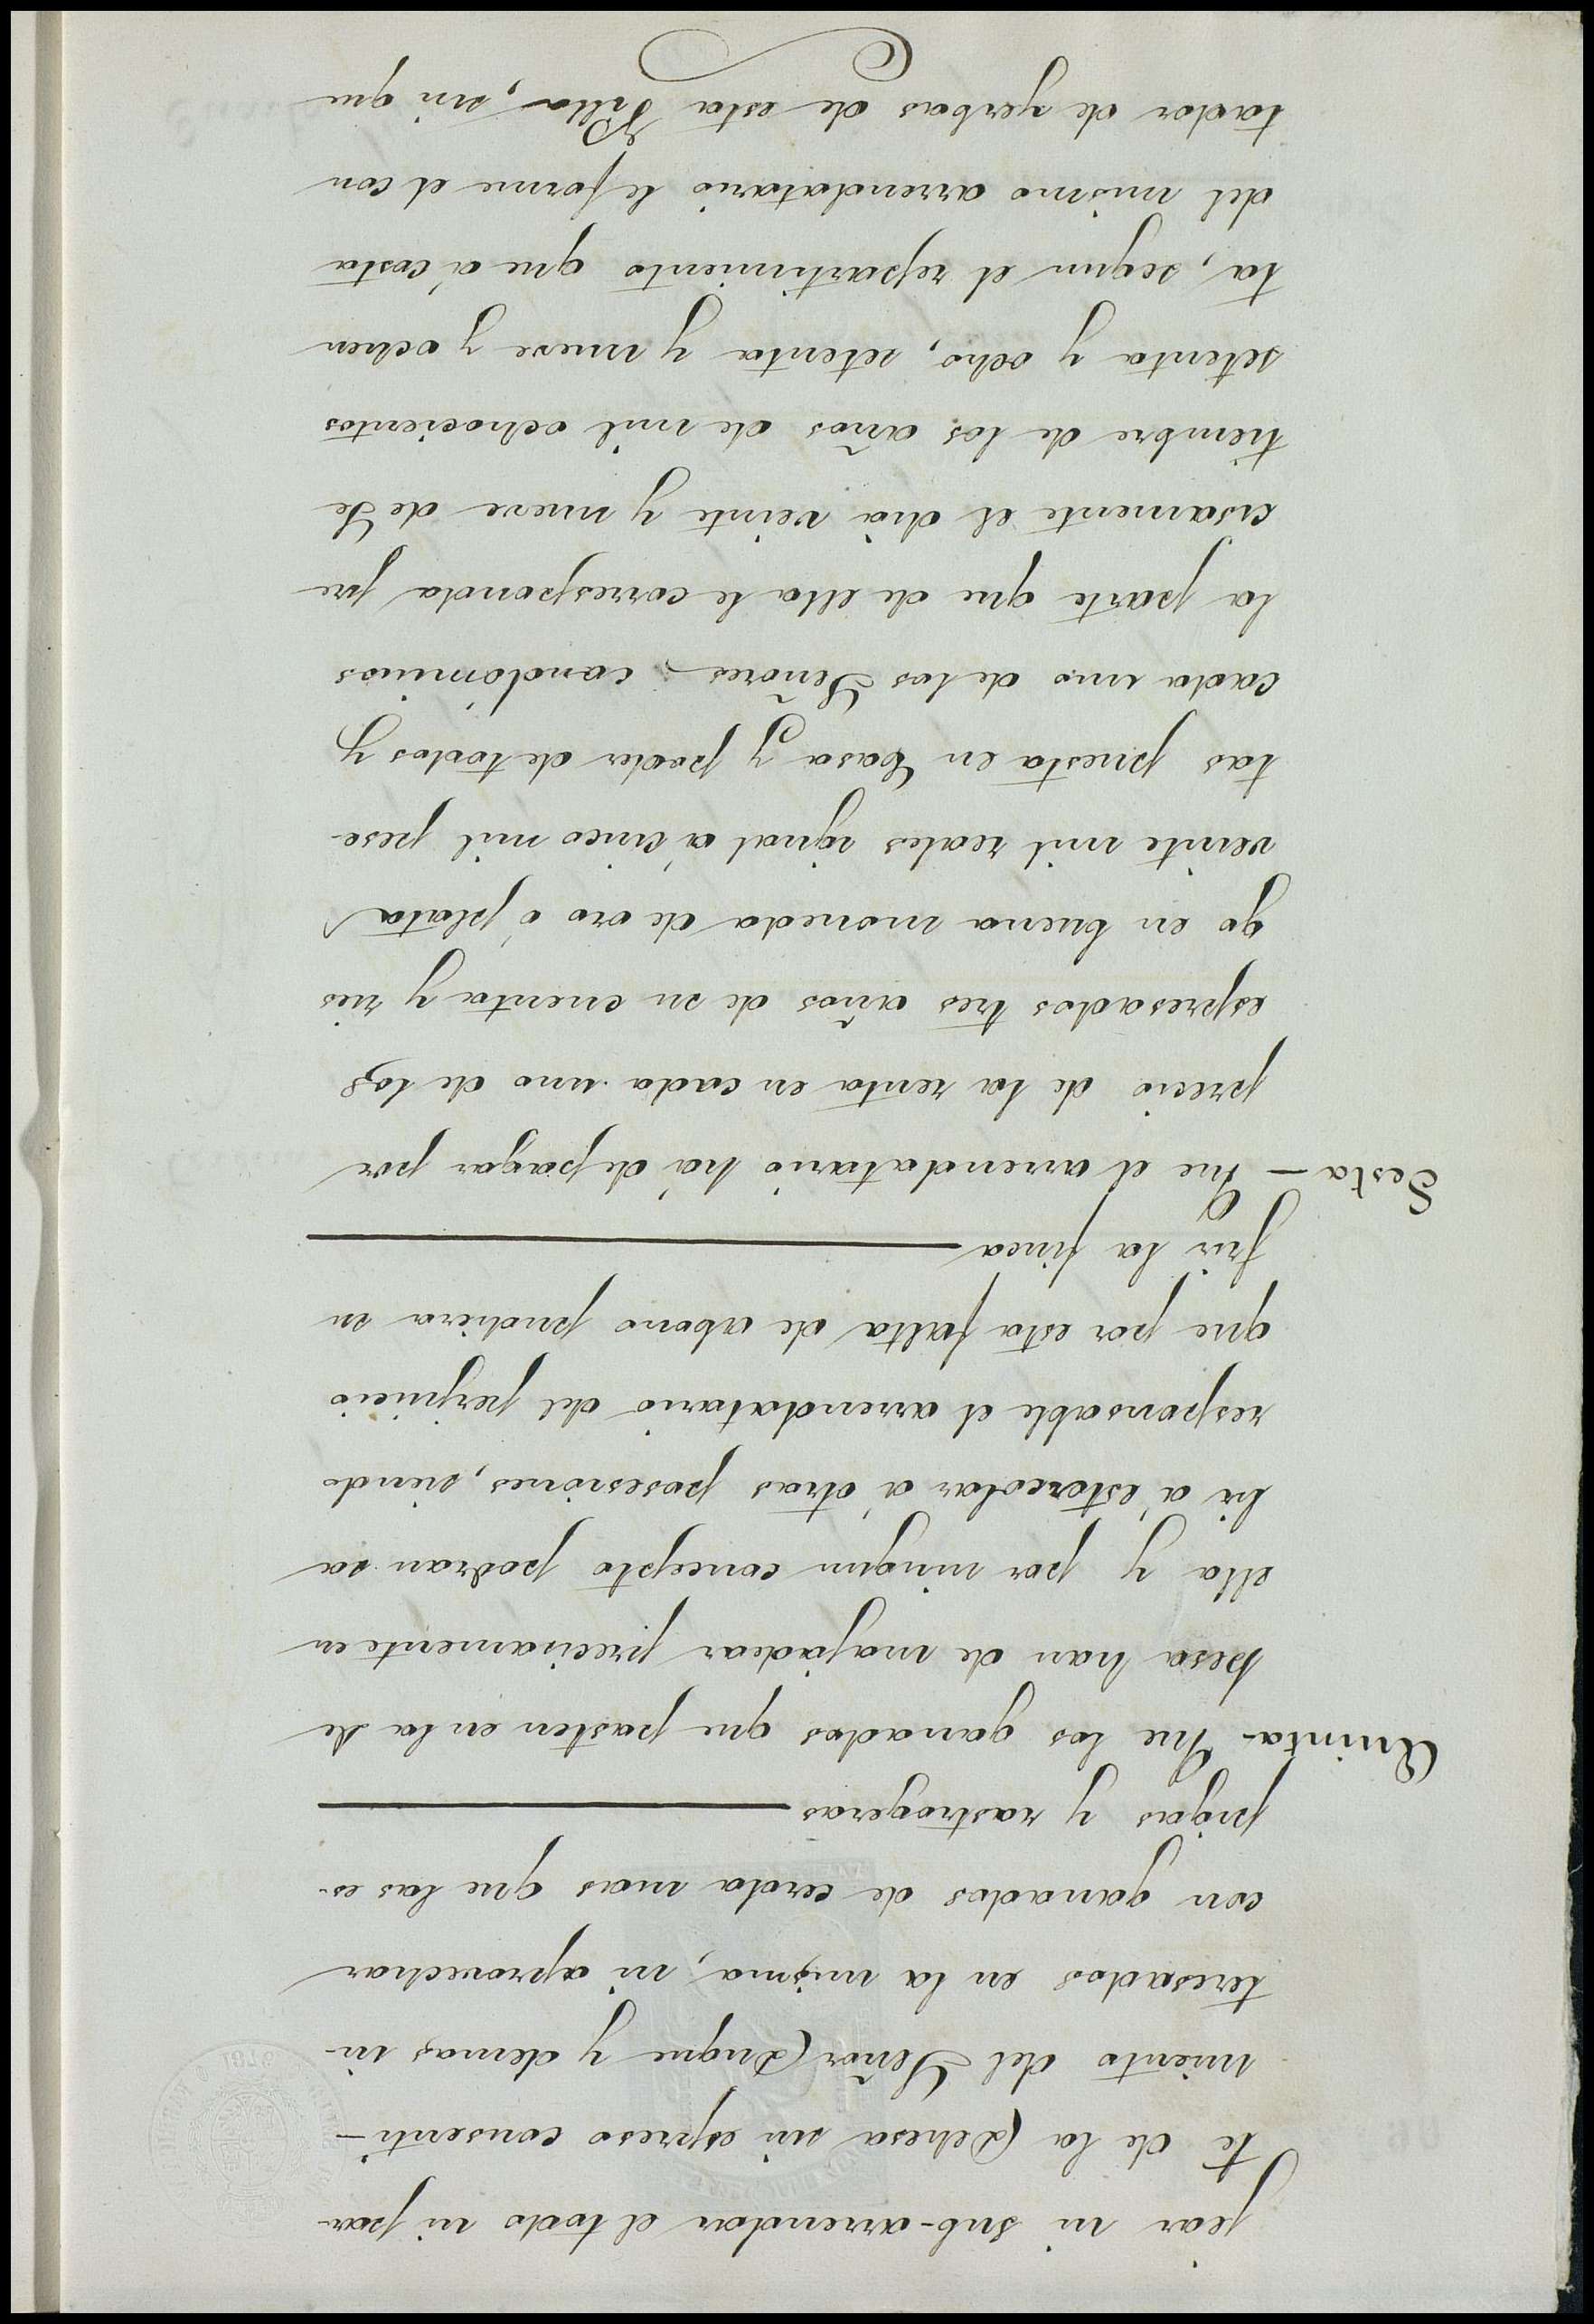 jear ni sub-arrendar el todo ni par-
te de la Dehesa sin espreso consenti-
miento del Señor Duque y demas in-
teresados en la misma, ni aprovechar
con ganados de cerda mas que las es-
pigas y rastrogeras
Quinta- Que los ganados que pasten en la de
hesa han de majadear precisamente en
ella y por ningun concepto podran sa
lir á estercolar á otras posesiones, siendo
responsable el arrendatario del perjuicio
que por esta falta de abono pudiera su
frir la finca
Sesta- Que el arrendatario há de pagar por
precio de la renta en cada uno de los
espresados tres años de su cuenta y ries
go en buena moneda de oro ó plata
veinte mil reales igual á cinco mil pese-
tas puesta en Casa y poder de todos y
cada uno de los Señores condóminos
la parte que de ella le corresponda pre
cisamente el dia veinte y nueve de Se
tiembre de los años de mil ochocientos
setenta y ocho, setenta y nueve y ochen
ta, segun el repartimiento que á costa
del mismo arrendatario le forme el con
tador de yerbas de esta Villa, sin que